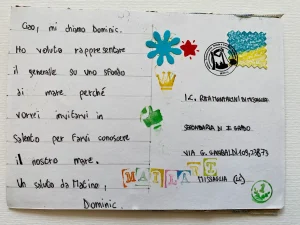 Ciao, mi chiamo Dominic.
Ho voluto rappresentare
il generale su uno sfondo
di mare perché
vorrei invitarvi in
Salento per farvi conoscere
il nostro mare.
Un saluto da Matino,
Dominic.
I.C. RITA MONTALCINI DI MISSAGLIA
SECONDARIA DI I GRADO
VIA G. GARIBALDI 109, 23873
MISSAGLIA (LC)